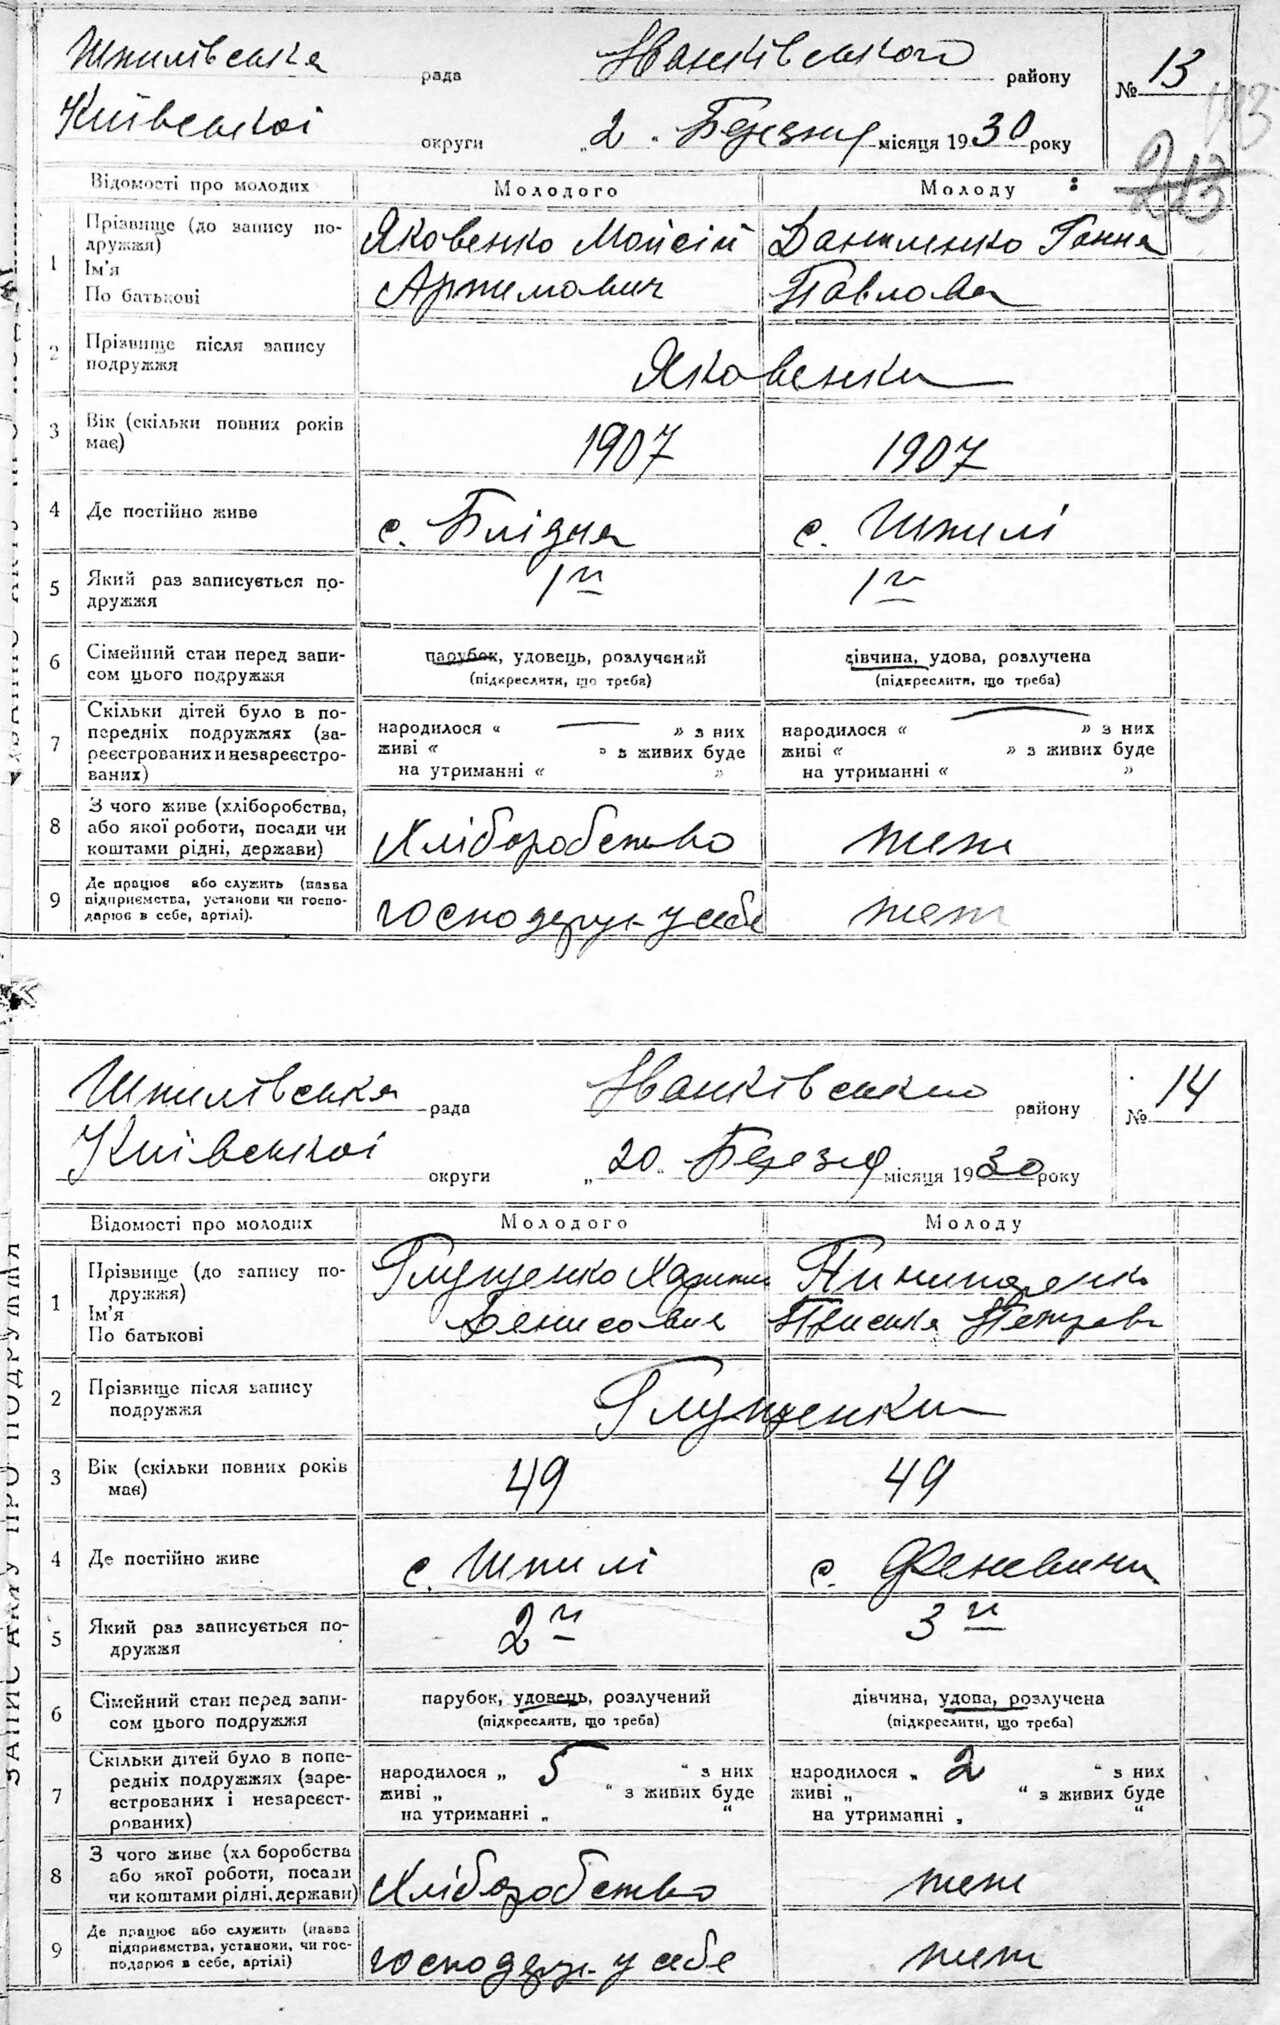 Шпилівська рада Іванківського району № 13
Київської округи „2" Березня місяця 1930 року
213
Відомості про молодих Молодого Молоду
1 Прізвище (до запису подружжя)
Ім'я
По батькові
Яковенко Мойсій Даниленко Ганна
Артимович Павлова
2 Прізвище після запису подружжя
Яковенки
3 Вік (скільки повних років має) 1907 1907
4 Де постійно живе с. Блідча с. Шпилі
5 Який раз записується подружжя 1й 1й
6 Сімейний стан перед записом цього подружжя
парубок, удовець, розлучений дівчина, удова, розлучена
(підкреслити, що треба) (підкреслити, що треба)
7 Скільки дітей було в попередніх подружжях (зареєстрованих и незареєстрованих)
народилося « — » з них народилося « — » з них
живі « » з живих буде живі « » з живих буде
на утриманні « » на утриманні « »
8 З чого живе (хліборобства, або якої роботи, посади чи коштами рідні, держави)
Хліборобство теж
9 Де працює або служить (назва підприємства, установи чи господарює в себе, артілі).
господарює у себе теж
Шпилівська рада Іванківського району № 14
Київської округи „20" Березня місяця 1930 року
ЗАПИС АКТУ ПРО ПОДРУЖЖЯ
Відомості про молодих Молодого Молоду
1 Прізвище (до запису подружжя)
Ім'я
По батькові
Глущенко Харитин
Денисович Пріська Петрова
2 Прізвище після запису подружжя
Глущенки
3 Вік (скільки повних років має) 49 49
4 Де постійно живе с. Шпилі с. Феневичи
5 Який раз записується подружжя 2й 3й
6 Сімейний стан перед записом цього подружжя
парубок, удовець, розлучений дівчина, удова, розлучена
(підкреслити, що треба) (підкреслити, що треба)
7 Скільки дітей було в попередніх подружжях (зареєстрованих і незареєстрованих)
народилося „ 5 " з них народилося „ 2 " з них
живі „ " з живих буде живі „ " з живих буде
на утриманні „ " на утриманні „ "
8 З чого живе (хліборобства або якої роботи, посади чи коштами рідні, держави)
Хліборобство теж
9 Де працює або служить (назва підприємства, установи, чи господарює в себе, артілі)
господарює у себе теж